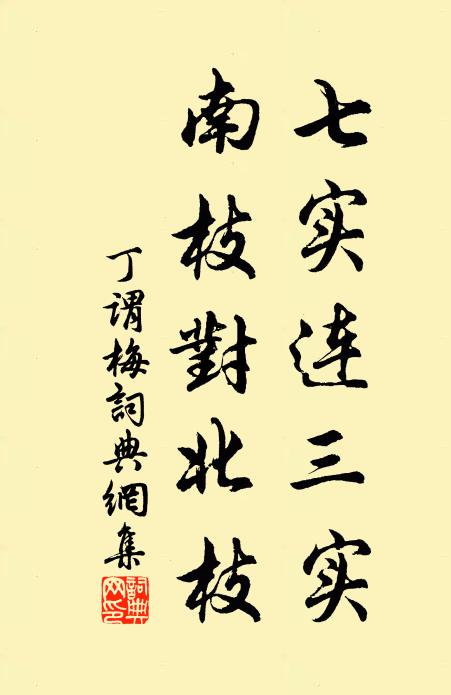 七实连三实
南枝對北枝
丁谓梅詞典網集
詞典網印